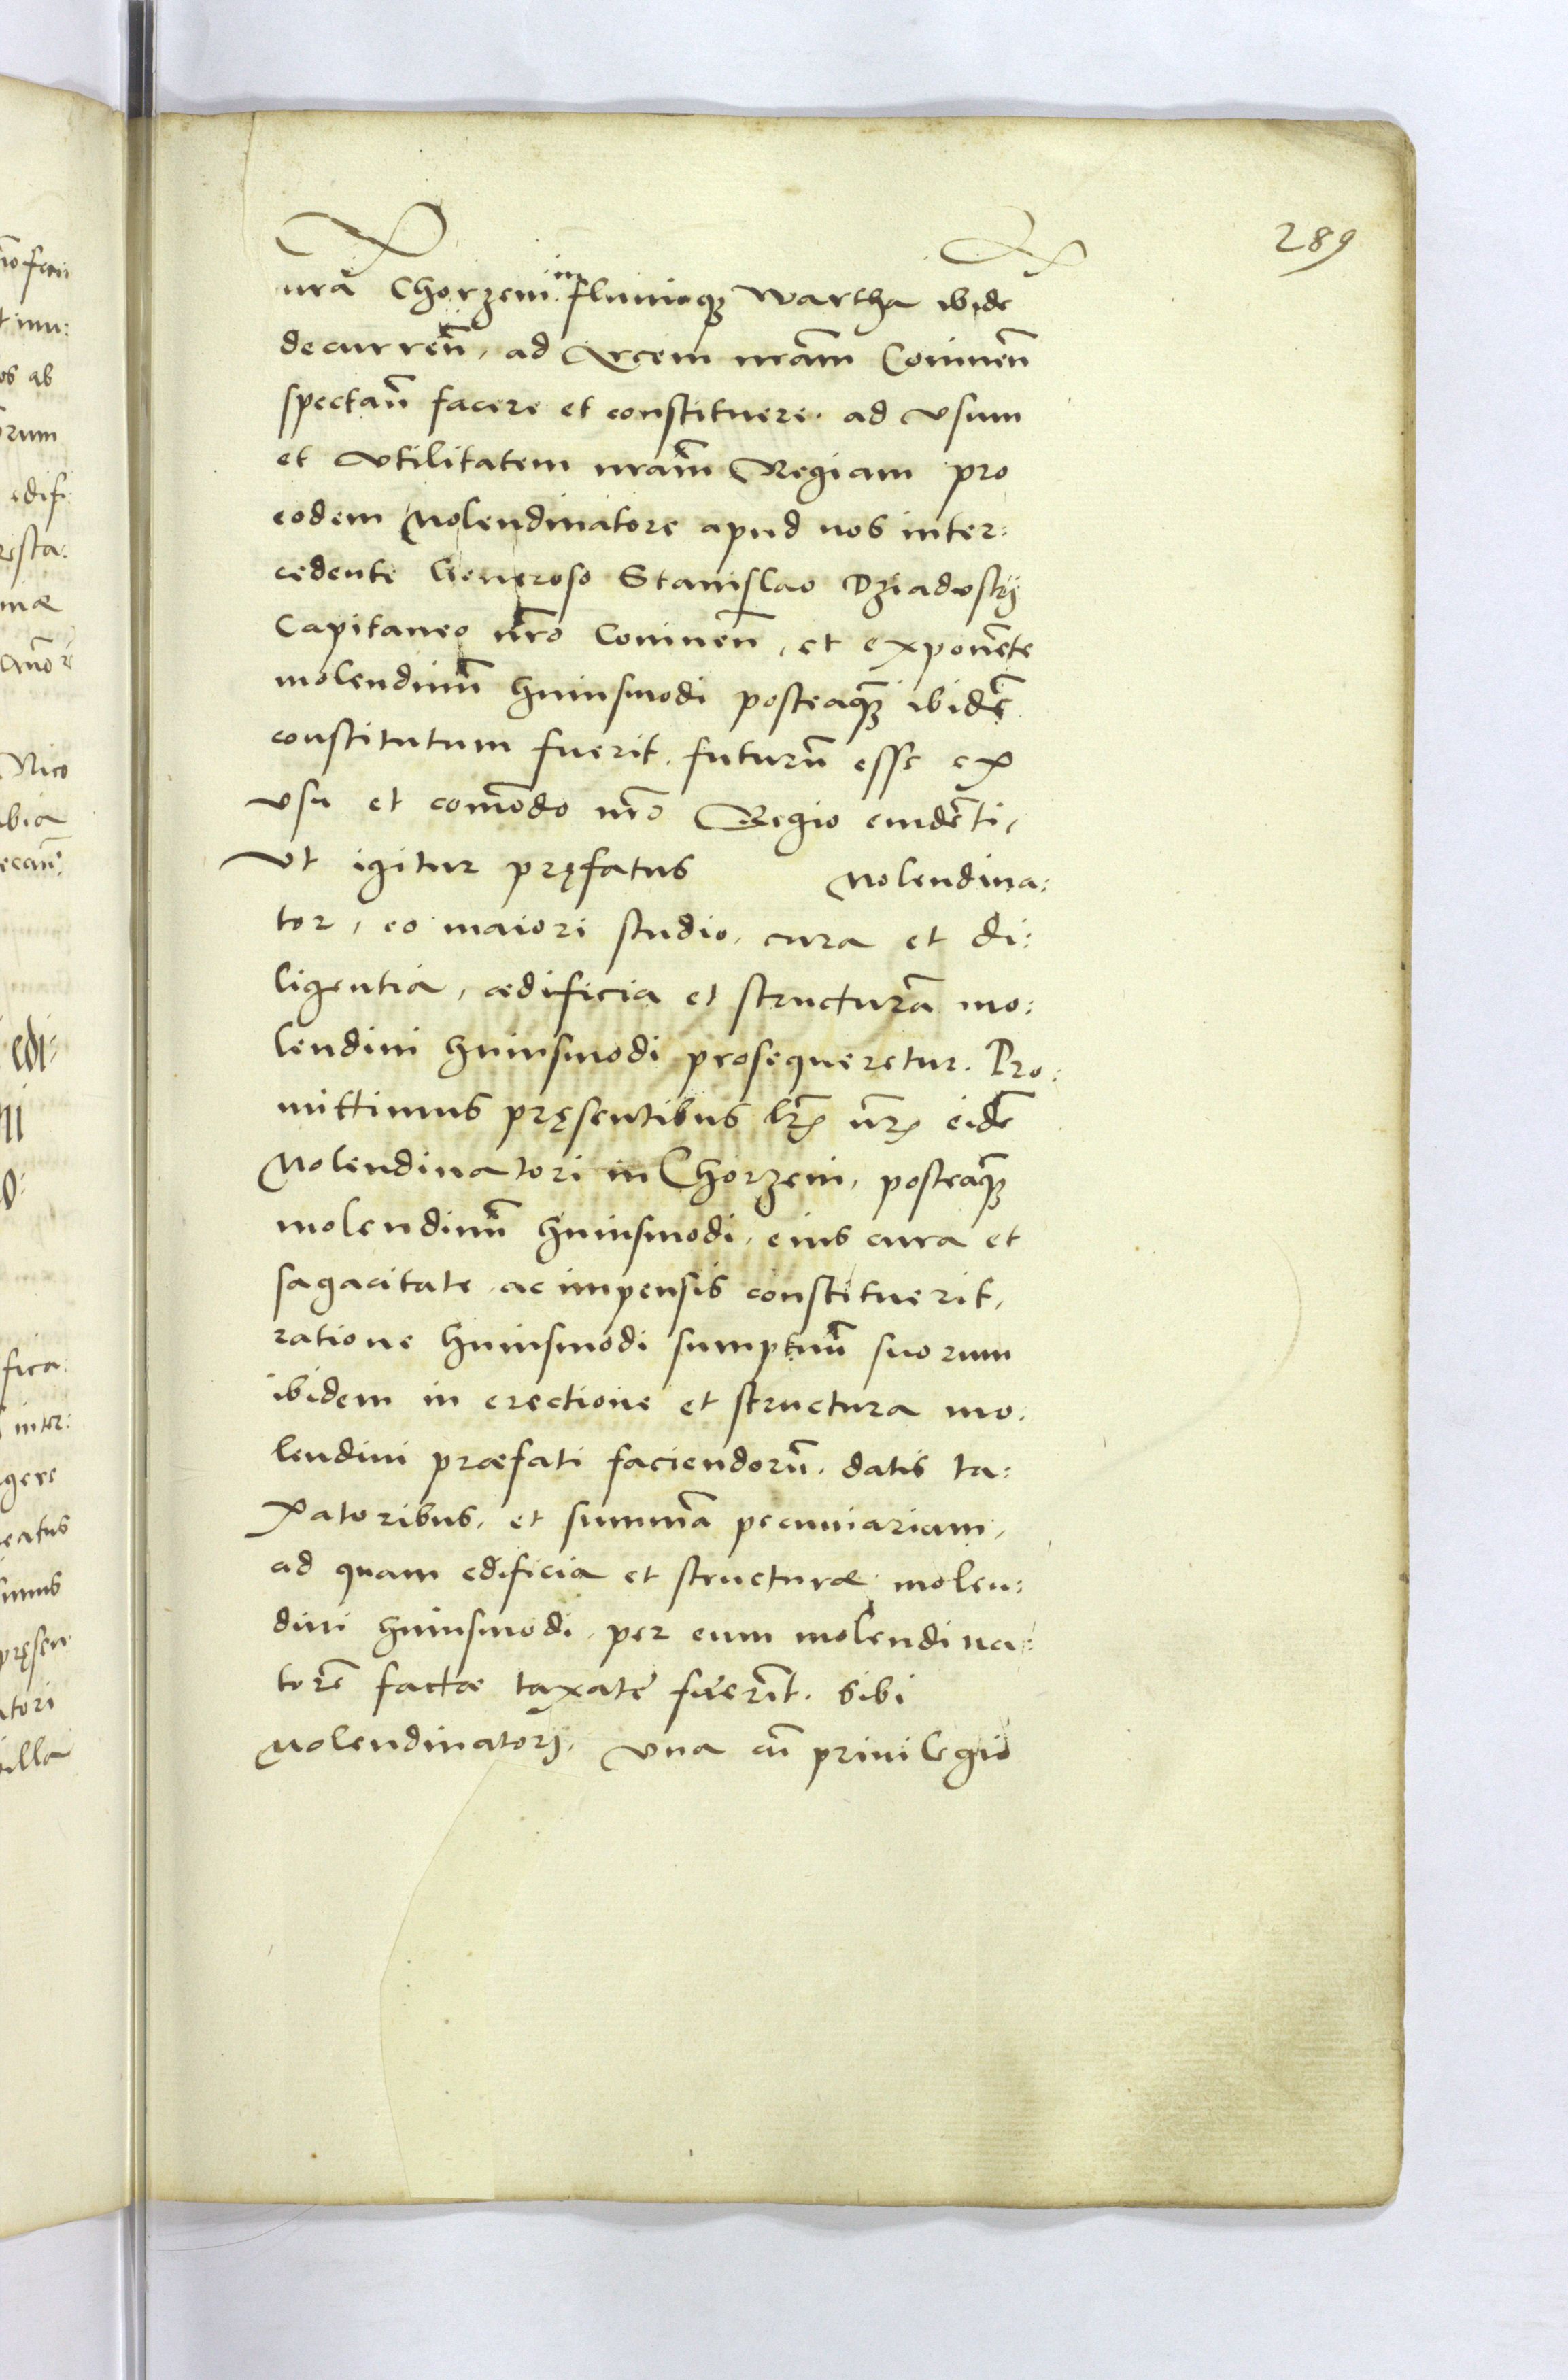 289
nrã Chorzem in fluuioq3 Wartha ibidẽ
decurreñ, ad Arcem nrãm Conineñ
spectañ facere et constituere. ad vsum
et vtilitatem nrãm Regiam pro
eodem Molendinatore apud nos inter:
cedente Generoso Stanislao Dziadoskÿ
Capitaneo nr̃o Conineñ, et exponẽte
molendinũ huiusmodi posteaq̃3 ibidẽ
constitutum fuerit. futurũ esse ex
vsu et com̃odo nr̃o Regio euidẽti,
Vt igitur pręfatus Molendina:
tor, eo maiori studio, cura et di:
ligentia, ædificia et structurã mo:
lendini huiusmodi prosequeretur. Pro:
mittimus pręsentibus lr̃is nr̃is eidẽ
Molendinatori in Chorzem, posteaq̃3
molendinũ huiusmodi, eius cura et
sagacitate, ac impensis constituerit,
ratione huiusmodi sumptuũ suorum
ibidem in erectione et structura mo:
lendini præfati faciendorũ. datis ta:
xatoribus, et summã pecuniariam,
ad quam edificia et structuræ molen:
dini huiusmodi, per eum molendina:
torẽ factæ taxate fuerĩt. Sibi
Molendinatorj, vna cũ priuilegio